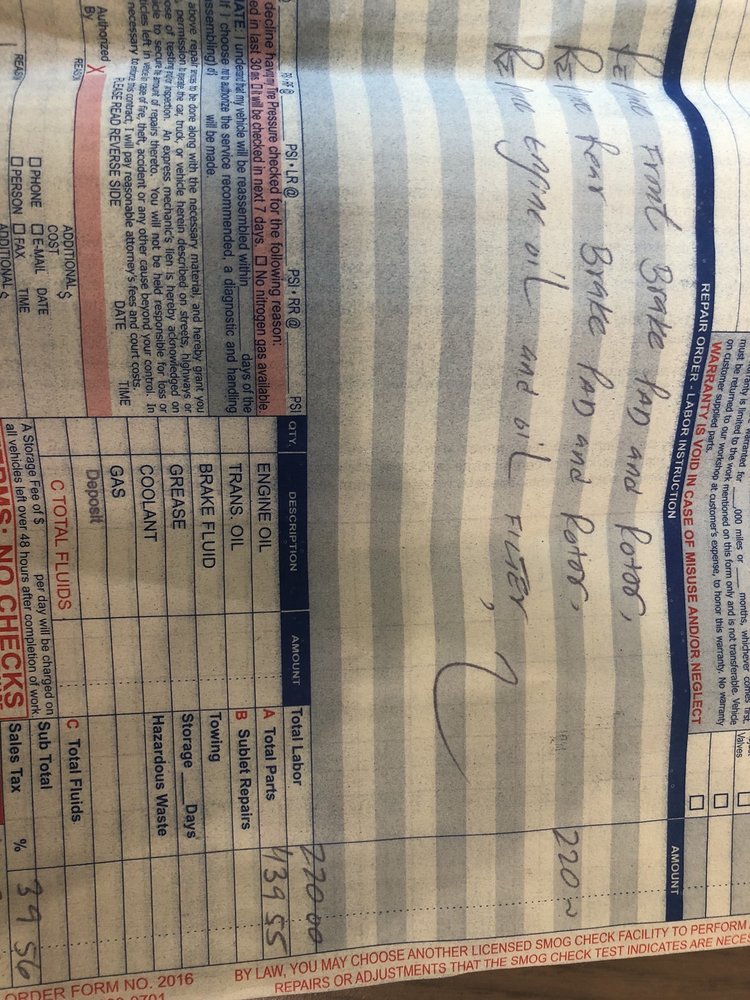 warranted for ____,000 miles or ____ months, whichever comes first.
warranty is limited to the work mentioned on this form only and is not transferable. Vehicle
must be returned to our workshop at customer's expense, to honor this warranty. No warranty
on customer supplied parts.
WARRANTY IS VOID IN CASE OF MISUSE AND/OR NEGLECT
Valves
REPAIR ORDER - LABOR INSTRUCTION
AMOUNT
Front Brake PAD and Rotor,
Rear Brake PAD and Rotor,
220
Engine oil and oil FILTER,
PSI • LR @ PSI • RR @ PSI
decline having my Tire Pressure checked for the following reason:
in last 30 days ☐ It will be checked in next 7 days. ☐ No nitrogen gas available.
I understand that my vehicle will be reassembled within ____ days of the
if I choose not to authorize the service recommended, a diagnostic and handling
will be made.
above repair work to be done along with the necessary material, and hereby grant you
permission to operate the car, truck, or vehicle herein described on streets, highways or
testing and/or inspection. An express mechanic's lien is hereby acknowledged on
to secure the amount of repairs thereto. You will not be held responsible for loss or
left in vehicle in case of fire, theft, accident or any other cause beyond your control. In
necessary to enforce this contract, I will pay reasonable attorney's fees and court costs.
PLEASE READ REVERSE SIDE
Authorized By X
DATE TIME
REASON
ADDITIONAL COST
$
☐ PHONE ☐ E-MAIL DATE
☐ PERSON ☐ FAX TIME
REASON
ADDITIONAL $
QTY. DESCRIPTION AMOUNT
ENGINE OIL
TRANS. OIL
BRAKE FLUID
GREASE
COOLANT
GAS
Deposit
C TOTAL FLUIDS
A Storage Fee of $ per day will be charged on
all vehicles left over 48 hours after completion of work.
TERMS: NO CHECKS
Total Labor 220 00
A Total Parts 439 55
B Sublet Repairs
Towing
Storage ____ Days
Hazardous Waste
C Total Fluids
Sub Total
Sales Tax % 39 56
BY LAW, YOU MAY CHOOSE ANOTHER LICENSED SMOG CHECK FACILITY TO PERFORM
REPAIRS OR ADJUSTMENTS THAT THE SMOG CHECK TEST INDICATES ARE
ORDER FORM NO. 2016